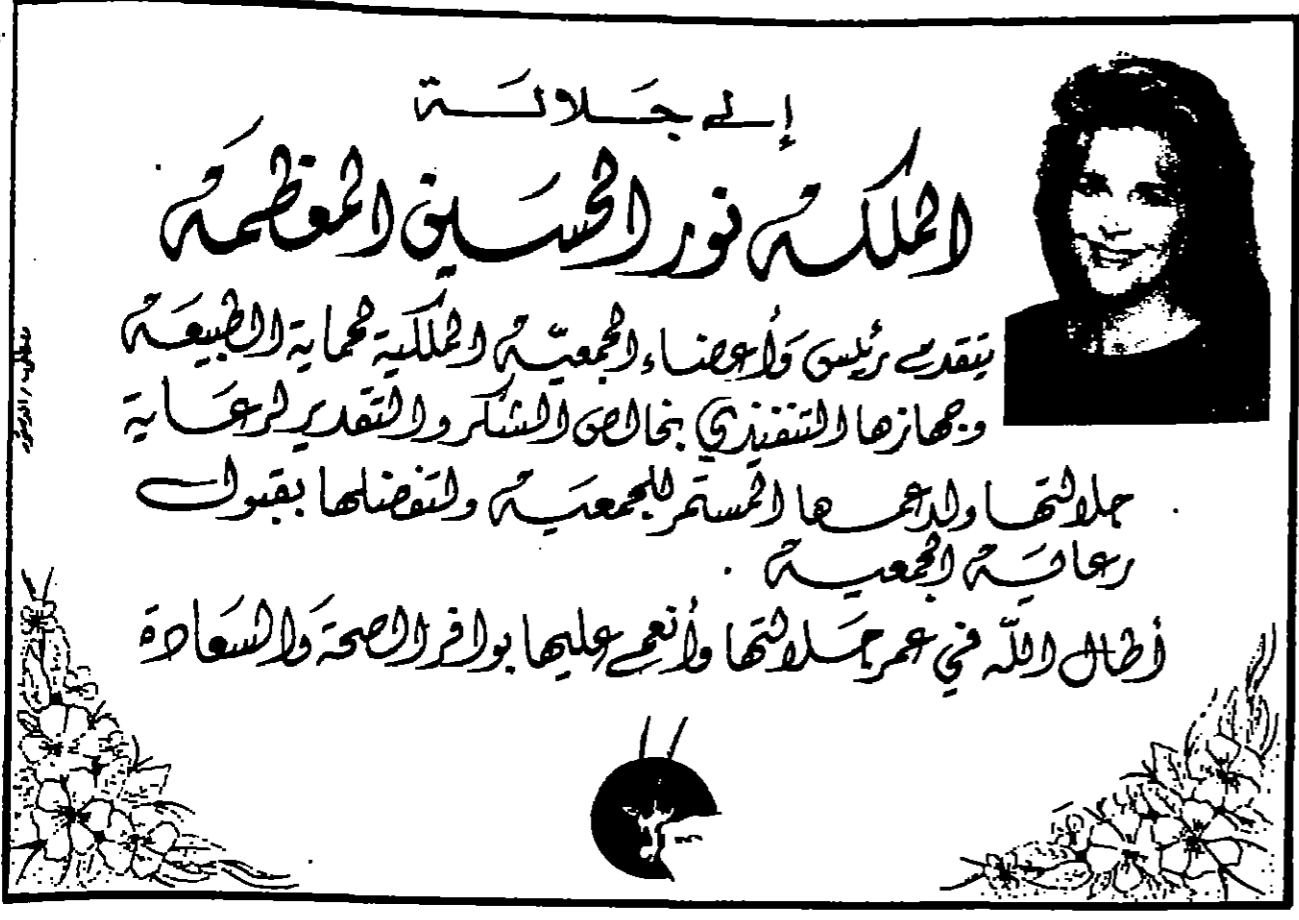 إلى جَلالَة
الملكة نور الحسَين المعظمَة
يتقدم رئيس وَأعضاء الجمعيّة الملكية لحماية الطبيعَة
وجهازها التنفيذي بخالص الشكر والتقدير لرعَاية
جلالتها ولدعمها المستمر للجمعيَة ولتفضلها بقبول
رعايَة الجمعية .
أطال اللّه في عمر جَلالتها وأنعم عليها بوافر الصحة وَالسَعادة